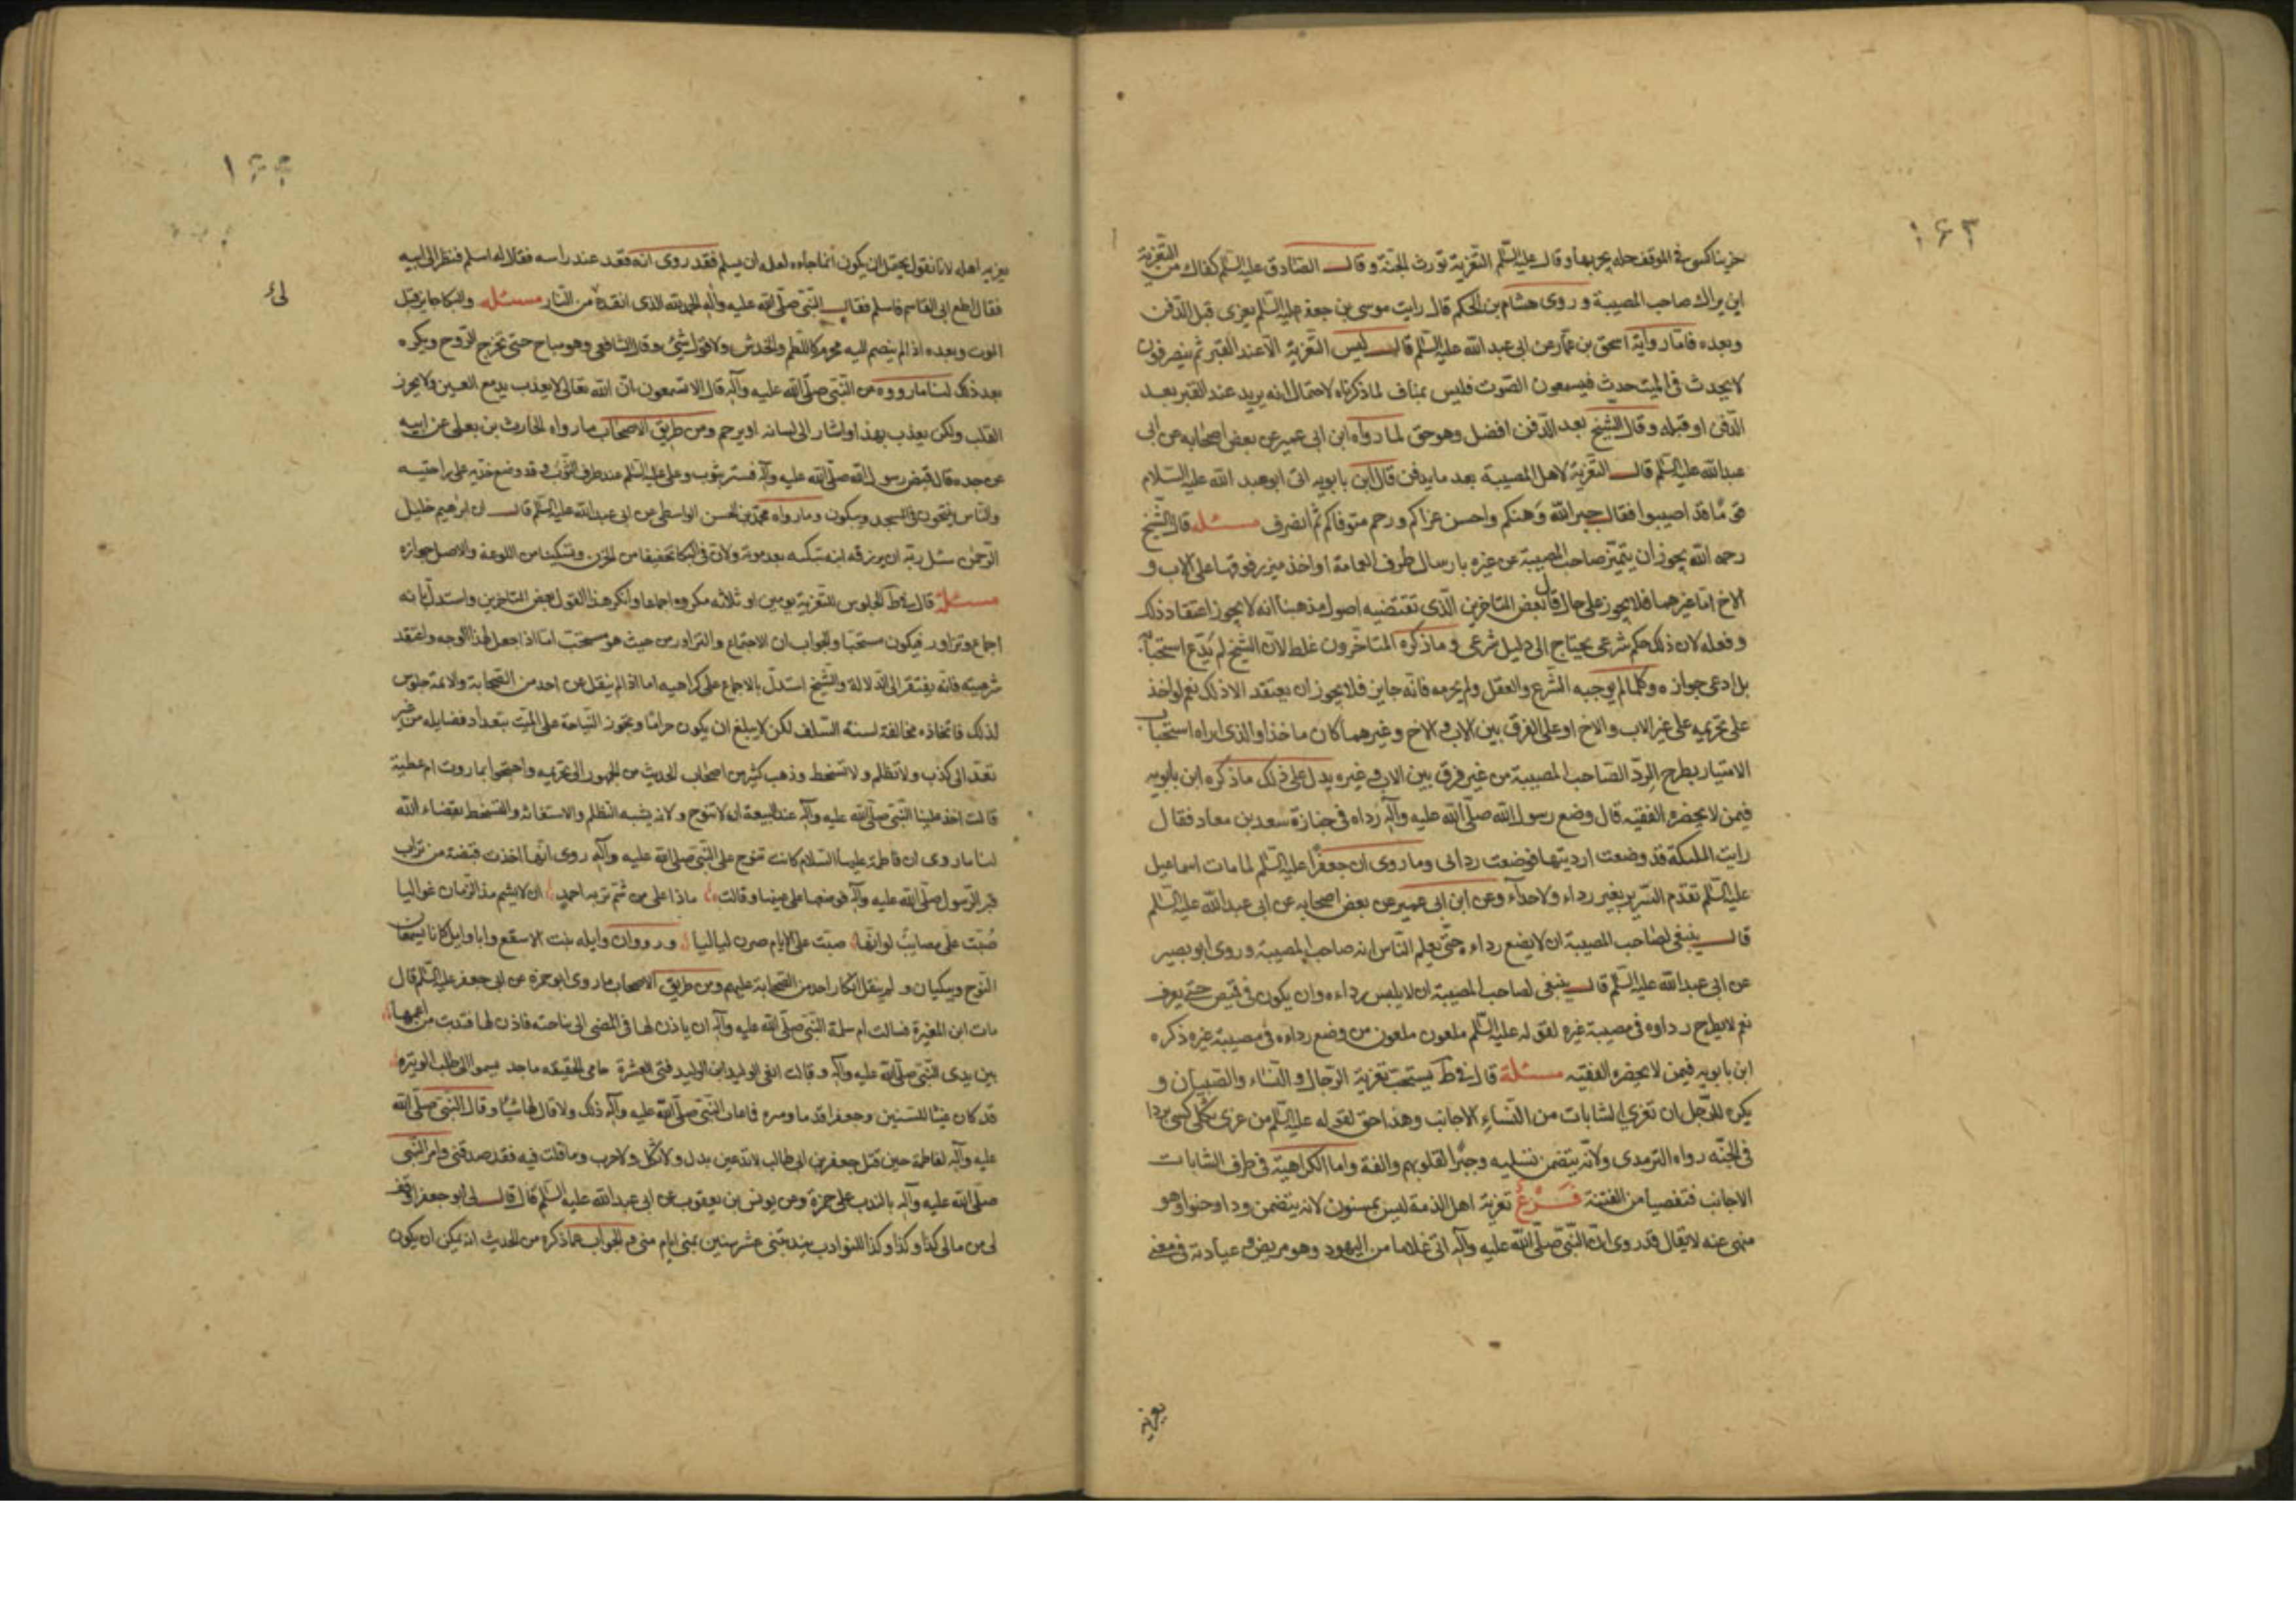 ١٦٣
حزينا كسى فى الموقف حله يحبر بها وقال عليه السّلم التعزية تورث الجنة وقال الصادق عليه السّلم كفاك من التعزية
ان يراك صاحب المصيبة وروى هشام بن الحكم قال رايت موسى بن جعفر عليه السّلم يعزى قبل الدّفن
وبعده فامّا رواية اسحق بن عمّار عن ابى عبد الله عليه السّلم قال ليس التعزية الّا عند القبر ثم ينصرفون
لا يحدث فى الميت حدث فيسمعون الصّوت فليس بمناف لما ذكرناه لاحتمال انه يريد عند القبر بعد
الدّفن او قبله وقال الشيخ بعد الدّفن افضل وهو حق لما رواه ابن ابى عمير عن بعض اصحابه عن ابى
عبد الله عليه السّلم قال التعزية لاهل المصيبة بعد ما يدفن قال ابن بابويه اتى ابو عبد الله عليه السّلام
قومًا قد اصيبوا فقال جبر الله وهنكم واحسن عزاكم ورحم متوفاكم ثم انصرف مسئله قال الشّيخ
رحمه الله يجوز ان يتميّز صاحب المصيبة عن غيره بارسال طرف العمامة او اخذ ميزر فوقها على الاب و
الاخ امّا غيرهما فلا يجوز على حال قال بعض المتاخرين الّذى تقتضيه اصول مذهبنا انه لا يجوز اعتقاد ذلك
وفعله لان ذلك حكم شرعى يحتاج الى دليل شرعى وما ذكره المتاخّرون غلط لانّ الشيخ لم يدّع استحبابه
بل ادعى جوازه وكلما لم يوجبه الشّرع والعقل ولم يحرمه فانّه جايز فلا يجوز ان يعتقد الا ذلك نعم لو اخذ
على تحريمه على غير الاب والاخ او على الفرق بين الاب والاخ وغيرهما كان ماخذا والذى اراه استحباب
الامتياز بطرح الردّ الصاحب المصيبة من غير فرق بين الاب وغيره يدل على ذلك ما ذكره ابن بابويه
فيمن لا يحضره الفقيه قال وضع رسول الله صلّى الله عليه وآله رداه فى جنازة سعد بن معاد فقال
رايت الملئكة قد وضعت ارديتها فوضعت ردائى وما روى ان جعفرًا عليه السّلم لما مات اسماعيل
عليه السّلم تقدّم السّرير بغير رداء ولا حذآء وعن ابن ابى عمير عن بعض اصحابه عن ابى عبد الله عليه السّلم
قال ينبغى لصاحب المصيبة ان لا يضع رداءه حتّى يعلم النّاس انه صاحب المصيبة وروى ابو بصير
عن ابى عبد الله عليه السّلم قال ينبغى لصاحب المصيبة ان لا يلبس رداءه وان يكون فى قميص حتى يعرف
نعم لا يطرح رداوه فى مصيبة غيره لقوله عليه السّلم ملعون ملعون من وضع رداءه فى مصيبة غيره ذكره
ابن بابويه فيمن لا يحضره الفقيه مسئلة قال فى ط يستحب تعزية الرّجال والنّساء والصّبيان و
يكره للرّجل ان تعزى الشابات من النّساءِ الاجانب وهذا حق لقوله عليه السّلم من عزى ثكلى كسى بردا
فى الجنّه رواه الترمدى ولانّه يتضمن تسليه وجبرًا لقلوبهم والفة واما الكراهية فى طرف الشابات
الاجانب فتفصيا من الفتنة فَرْعٌ تعزية اهل الذمة ليس بمسنون لانه يتضمن ودا وحنوا وهو
منهى عنه لا يقال قد روى انّ النّبىّ صلّى الله عليه وآله اتى غلاما من اليهود وهو مريض وعيادته فى معنى
تعزية
١٦٤
تعزيه اهله لانا نقول يحتمل ان يكون انما جاءه لعله ان يسلم فقد روى انه قعد عند راسه فقال له اسلم فنظر الى ابيه
فقال اطع ابى القاسم فاسلم فقال النّبى صلّى الله عليه وآله الحمد لله الذى انقده من النّار مسئله والبكا جايز قبل
الموت وبعده اذا لم ينضم اليه محرم كاللطم والخدش ولا قول شئ وقال الشافعى وهو مباح حتى تخرج الرّوح ويكره
بعد ذلك لنا ما رووه عن النّبى صلّى الله عليه وآله قال الا تسمعون انّ الله تعالى لا يعذب بدمع العين ولا بحزن
القلب ولكن يعذب بهذا واشار الى لسانه او يرحم ومن طريق الاصحاب ما رواه الحارث بن يعلى عن ابيه
عن جده قال قبض رسول الله صلّى الله عليه وآله فستر بثوب وعلى عليه السّلم عند طرف الثّوب وقد وضع خدّيه على راحتيه
والنّاس ينتحون فى المسجد ويبكون وما رواه محمّد بن الحسن الواسطى عن ابى عبد الله عليه السّلم قال ان ابرٰهيم خليل
الرّحمٰن سئل ربّه ان يرزقه ابنه تبكيه بعد موته ولانّ فى البكا تخفيفا من الحزن وتسكينا من اللوعة والاصل جوازه
مسئلة قال فى ط الجلوس للتعزية يومين او ثلاثه مكروه اجماعا وانكر هذا القول بعض المتاخرين واستدل بانه
اجماع وتزاور فيكون مستحبا والجواب ان الاجتماع والتزاور من حيث هو مستحب امّا اذا جعل لهذا الوجه واعتقد
شرعيته فانّه يفتقر الى الدلالة والشّيخ استدلّ بالاجماع على كراهيه اما اذ لم ينقل عن احد من الصّحابة والائمة جلوس
لذلك فاتخاذه مخالفة لسنة السّلف لكن لا يبلغ ان يكون حرامًا وتجوز النّياحة على الميّت بتعداد فضايله من غير
تعدّ الى كذب ولا تظلم ولا تسخط وذهب كثير من اصحاب الحديث من الجمهور الى تحريمه واحتجوا بما روت ام عطية
قالت اخذ علينا النّبى صلّى الله عليه وآله عند البيعة ان لا ننوح ولانه يشبه التظلم والاستغاثة والتسخط بقضاء الله
لنا ما روى ان فاطمة عليها السّلام كانت تنوح على النّبى صلّى الله عليه وآله روى انّها اخذت قبضة من تراب
قبر الرّسول صلّى الله عليه وآله فوضعها على عينها وقالت ماذا على من شمّ تربه احمدٍ ان لا يشم مذ الزّمان غواليا
صُبّت علىّ مصايبٌ لو انّها صبّت على الايام صرن لياليا ورووان وايله بنت الاسقع وابا وايل كانا يسمعان
النّوح ويبكيان ولم ينقل انكار احد من الصّحابة عليهم ومن طريق الاصحاب ما روى ابو حمزه عن ابى جعفر عليه السّلم قال
مات ابن المغيرة فسالت ام سلمة النّبى صلّى الله عليه وآله ان ياذن لها فى المضى الى مناحته فاذن لها فندبت من اعمها
بين يدى النّبى صلّى الله عليه وآله وقالت انعى الوليد ابن الوليد فتى العشرة حامى الحقيقه ماجد يسموا الى طلب الوتيره
قد كان غيثا للسنين وجعفرا قدما ومره فاعاب النّبى صلّى الله عليه وآله ذلك ولا قال لها شيًا وقال النّبى صلّى الله
عليه وآله لفاطمة حين قتل جعفر بن ابى طالب لا تدعين بدل ولا ثكل ولا حرب وما قلت فيه فقد صدقتى وامر النّبى
صلّى الله عليه وآله بالندب على حمزة وعن يونس بن يعقوب عن ابى عبد الله عليه السّلم قال قال لى ابو جعفر اوقف
لى من مالى كذا وكذا وكذا للنوادب يندبننى عشر سنين بمنى ايام منى والجواب عما ذكره من الحديث انه يمكن ان يكون